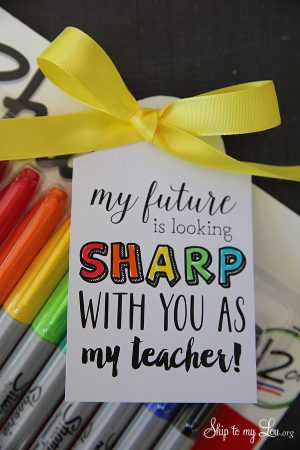 my future
is looking
SHARP
WITH YOU AS
my teacher!
12
Sharpie
Sharpie
Skip to my Lou.org